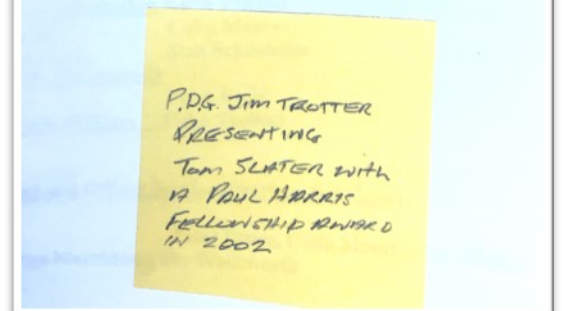 P.D.G. JIM TROTTER
PRESENTING
TOM SLATER WITH
A PAUL HARRIS
FELLOWSHIP AWARD
IN 2002